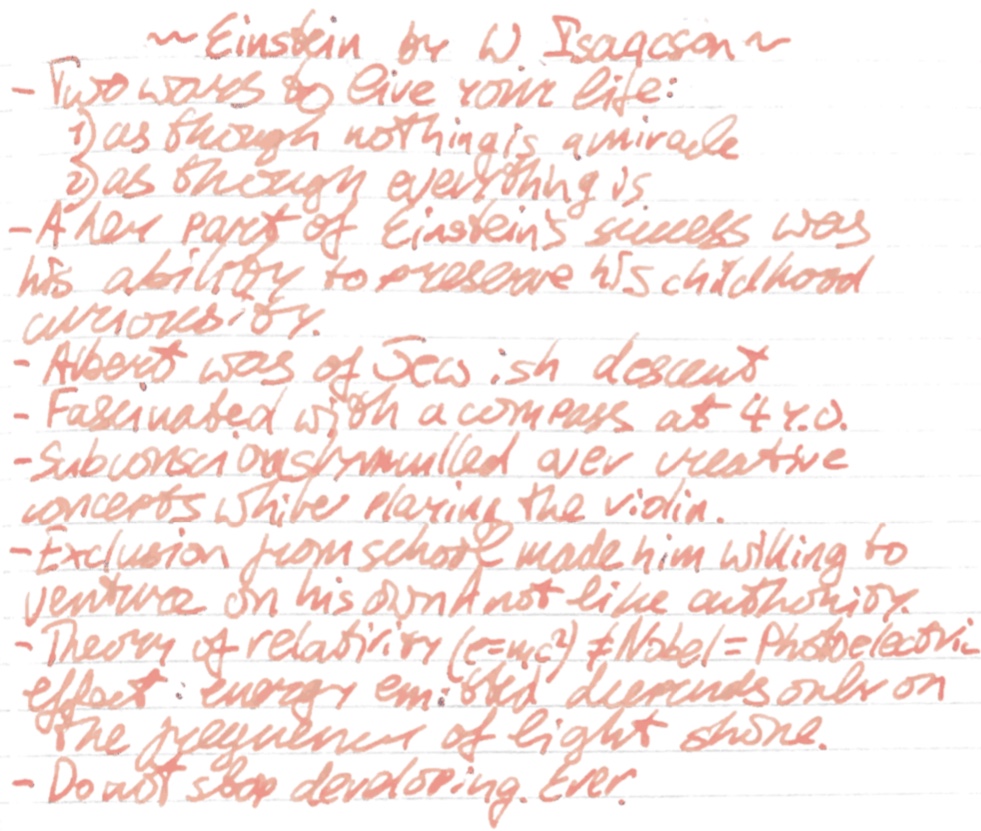 ~ Einstein by W Isaacson ~
- Two ways to live your life:
1) as though nothing is a miracle
2) as though everything is
- A key part of Einstein's success was
his ability to preserve his childhood
curiosity.
- Albert was of Jewish descent
- Fascinated with a compass at 4 y.o.
- Subconsciously mulled over creative
concepts while playing the violin.
- Exclusion from school made him willing to
venture on his own & not like authority.
- Theory of relativity (e=mc²) ≠ Nobel = Photoelectric
effect: energy emitted depends only on
the frequency of light shone.
- Do not stop developing. Ever.